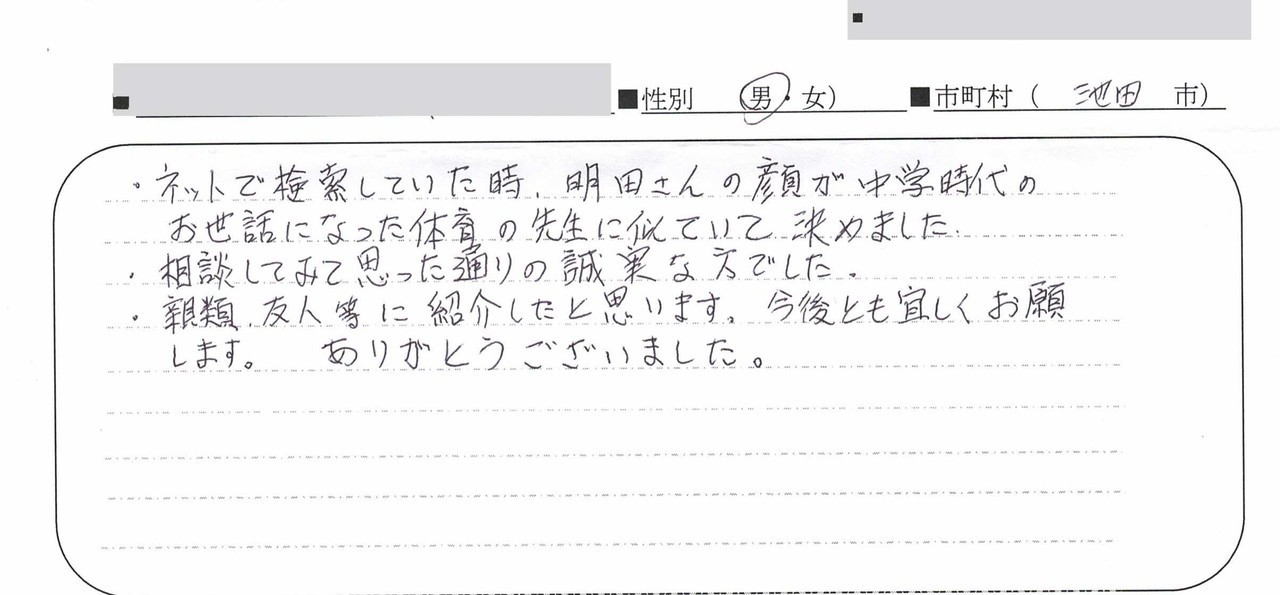 ■性別 男・女)■市町村(池田 市)
・ネットで検索していた時、明田さんの顔が中学時代の
お世話になった体育の先生に似ていて決めました.
・相談してみて思った通りの誠実な方でした。
・親類、友人等に紹介したと思います。今後とも宜しくお願
します。 ありがとうございました。